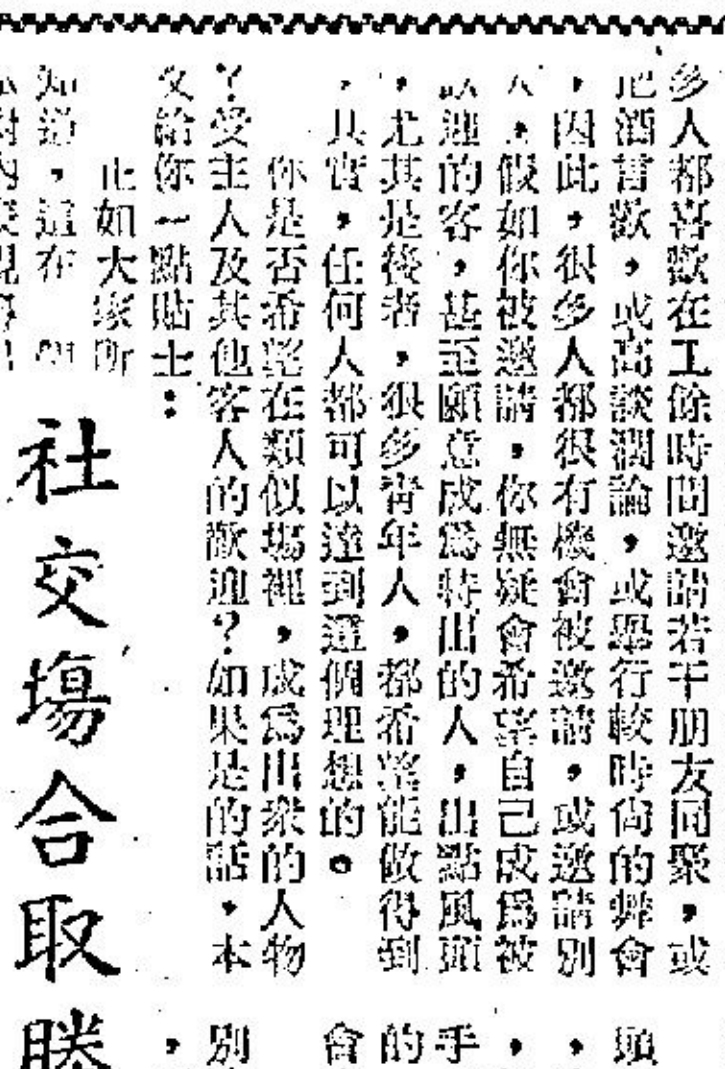 多人都喜歡在工餘時間邀請若干朋友同聚，或
把酒言歡，或高談濶論，或舉行較時尚的舞會
，因此，很多人都很有機會被邀請，或邀請別
人。假如你被邀請，你無疑會希望自己成爲被
歡迎的客，甚至願意成爲特出的人，出點風頭
，尤其是後者，很多靑年人，都希望能做得到
，其實，任何人都可以達到這個理想的。
你是否希望在類似場裡，成爲出衆的人物
？受主人及其他客人的歡迎？如果是的話，本
文給你一點貼士：
正如大家所
知道，這在
社交場合取勝
頭
，
，
手
的
會
別
，